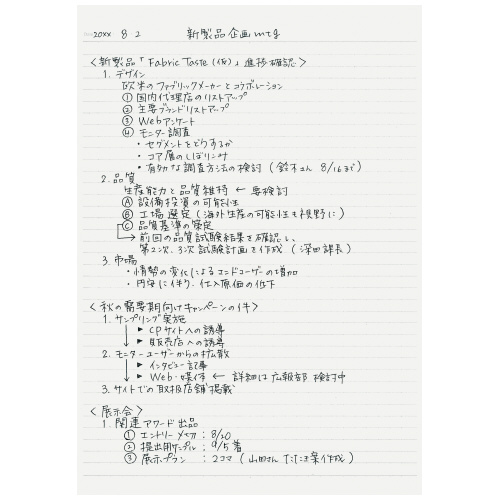 20xx 8 2 新製品企画mtg
〈新製品「Fabric Taste(仮)」進捗確認〉
1. デザイン
欧米のファブリックメーカーとコラボレーション
① 国内代理店のリストアップ
② 主要ブランドリストアップ
③ Webアンケート
④ モニター調査
・セグメントをどうするか
・コア層のしぼりこみ
・有効な調査方法の検討(鈴木さん 8/16まで)
2. 品質
生産能力と品質維持 ← 要検討
Ⓐ 設備投資の可能性
Ⓑ 工場選定(海外生産の可能性も視野に)
Ⓒ 品質基準の策定
→ 前回の品質試験結果を確認し、
第2次、3次試験計画を作成(深田課長)
3. 市場
・情勢の変化によるエンドユーザーの増加
・円安に伴う、仕入原価の低下
〈秋の需要期向けキャンペーンの件〉
1. サンプリング実施
▶ CPサイトへの誘導
▶ 販売店への誘導
2. モニターユーザーからの拡散
▶ インタビュー記事
▶ Web・媒体 ← 詳細は広報部 検討中
3. サイトでの取扱店舗掲載
〈展示会〉
1. 関連アワード出品
① エントリー〆切:8/20
② 提出用サンプル:9/5着
③ 展示プラン:2コマ(山田さん たたき案作成)